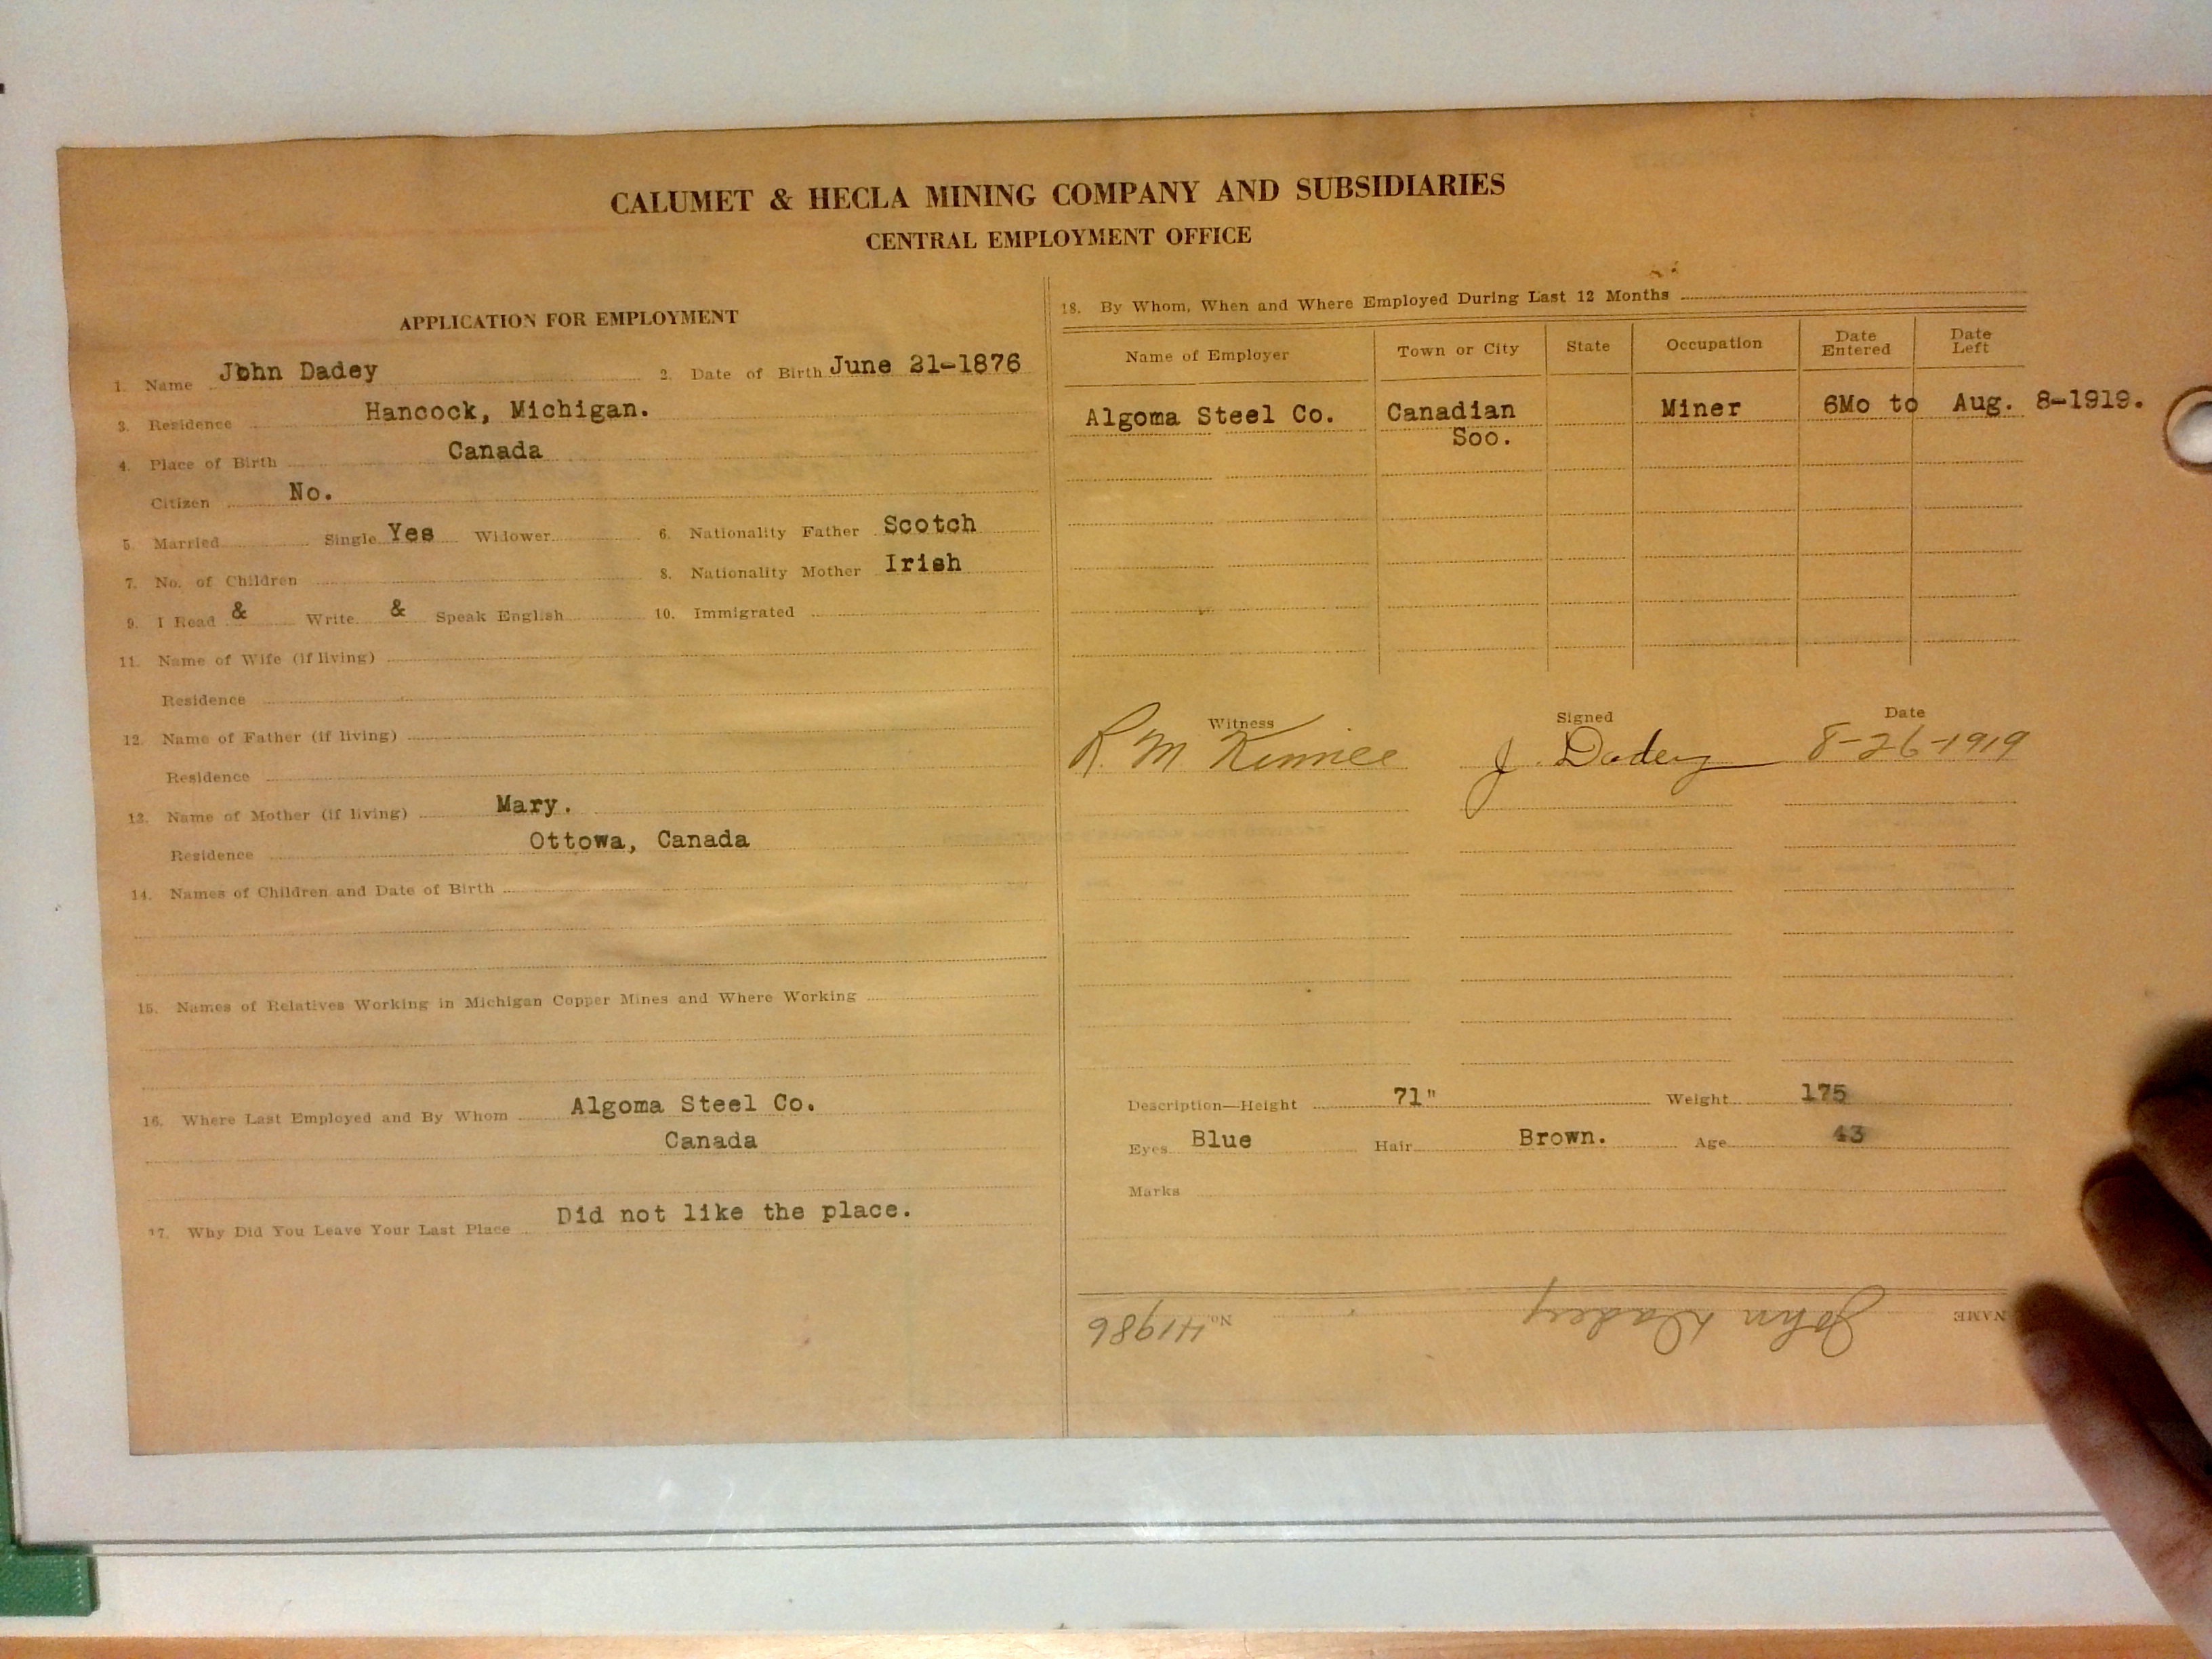 CALUMET & HECLA MINING COMPANY AND SUBSIDIARIES
CENTRAL EMPLOYMENT OFFICE
APPLICATION FOR EMPLOYMENT
1. Name John Dadey 2. Date of Birth June 21-1876
3. Residence Hancock, Michigan.
4. Place of Birth Canada
Citizen No.
5. Married Single Yes Widower 6. Nationality Father Scotch
7. No. of Children 8. Nationality Mother Irish
9. I Read & Write & Speak English 10. Immigrated
11. Name of Wife (if living)
Residence
12. Name of Father (if living)
Residence
13. Name of Mother (if living) Mary.
Residence Ottowa, Canada
14. Names of Children and Date of Birth
15. Names of Relatives Working in Michigan Copper Mines and Where Working
16. Where Last Employed and By Whom Algoma Steel Co.
Canada
17. Why Did You Leave Your Last Place Did not like the place.
18. By Whom, When and Where Employed During Last 12 Months
Name of Employer Town or City State Occupation Date Entered Date Left
Algoma Steel Co. Canadian Miner 6Mo to Aug. 8-1919.
Soo.
Witness Signed Date
R. M J. Dadey 8-26-1919
Description—Height 71" Weight 175
Eyes Blue Hair Brown. Age 43
Marks
NAME John Dadey No. 41986